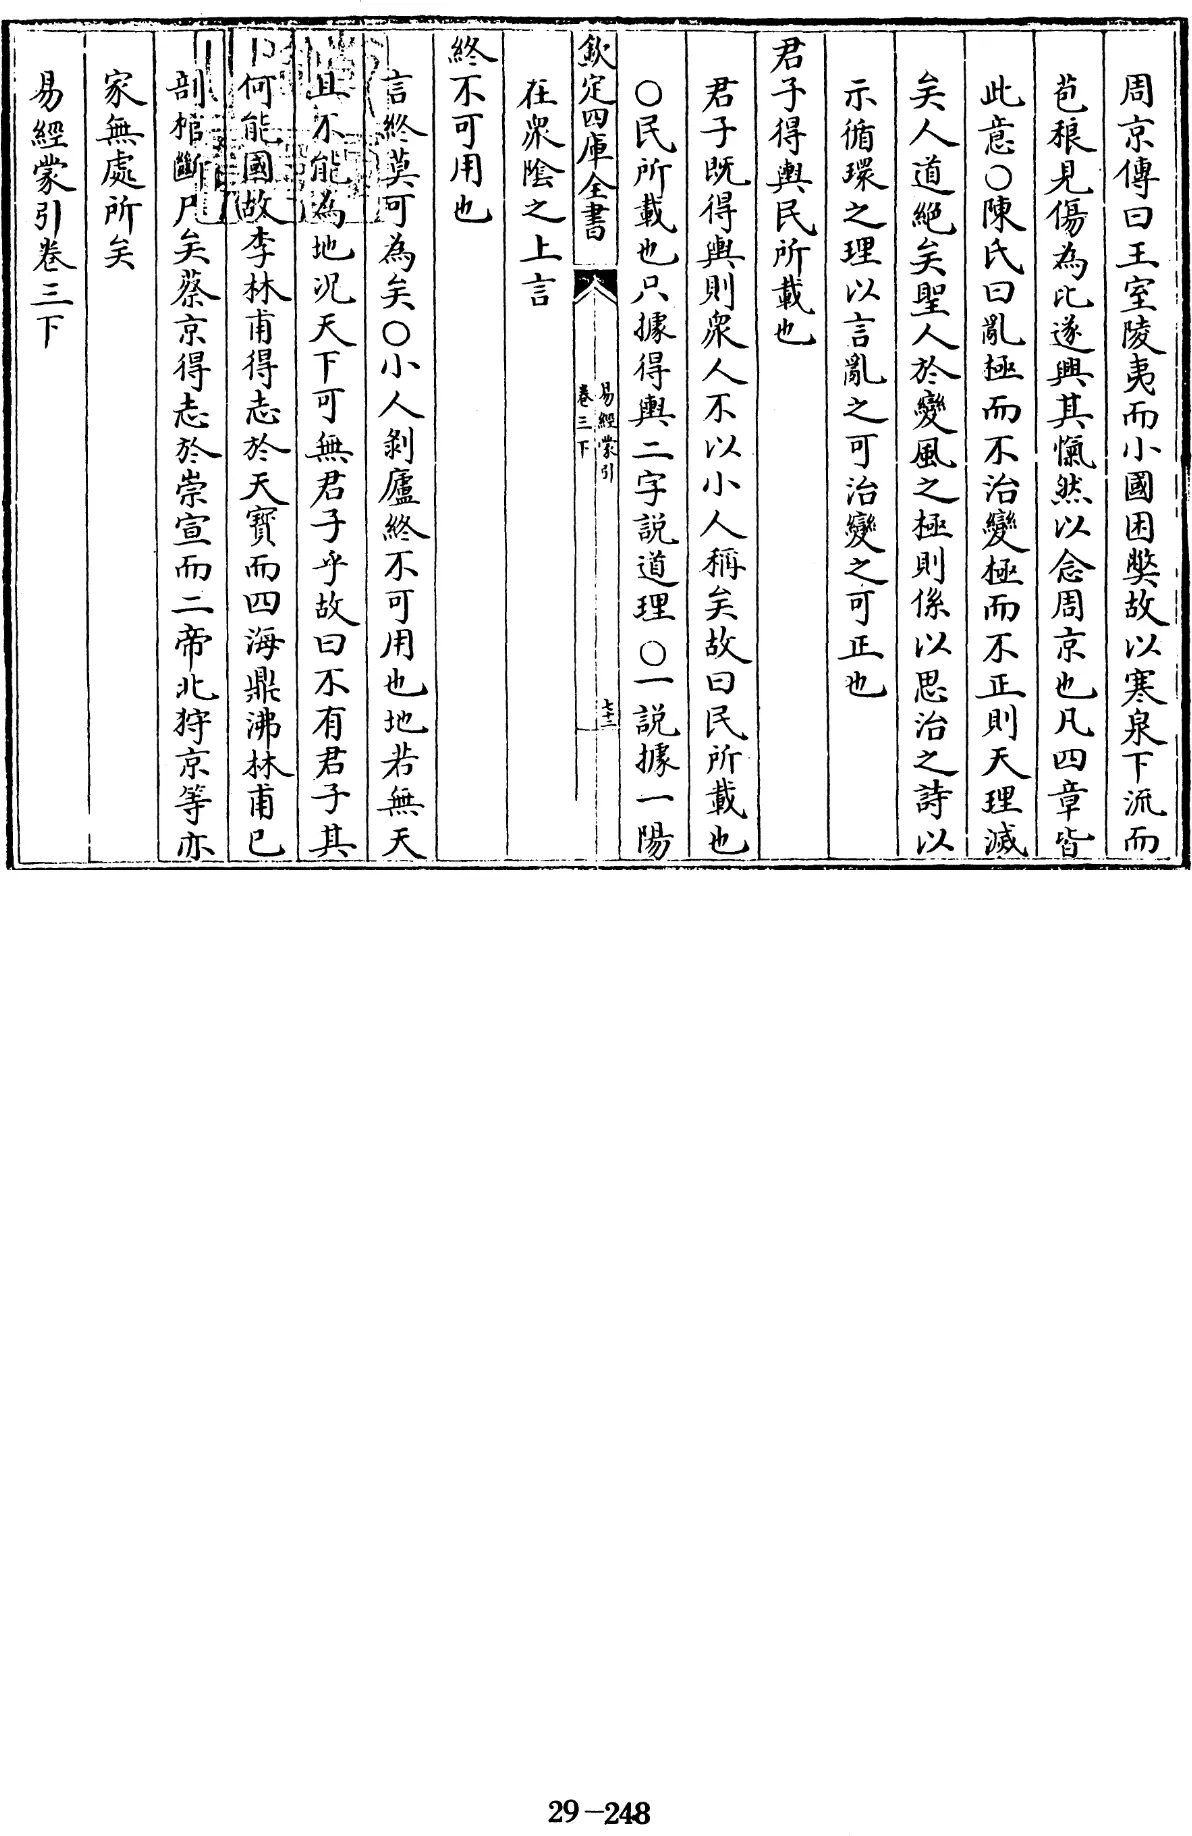 周京傳曰王室陵夷而小國困獘故以寒泉下流而
苞稂見傷為比遂興其愾然以念周京也凡四章皆
此意○陳氏曰亂極而不治變極而不正則天理滅
矣人道絕矣聖人於變風之極則係以思治之詩以
示循環之理以言亂之可治變之可正也
君子得輿民所載也
君子既得輿則衆人不以小人稱矣故曰民所載也
○民所載也只據得輿二字説道理○一説據一陽
欽定四庫全書
易經蒙引
卷三下
七十三
在衆陰之上言
終不可用也
言終莫可為矣○小人剝廬終不可用也地若無天
且不能為地况天下可無君子乎故曰不有君子其
何能國故李林甫得志於天寳而四海鼎沸林甫已
剖棺斷尸矣蔡京得志於崇宣而二帝北狩京等亦
家無處所矣
易經蒙引卷三下
29-248